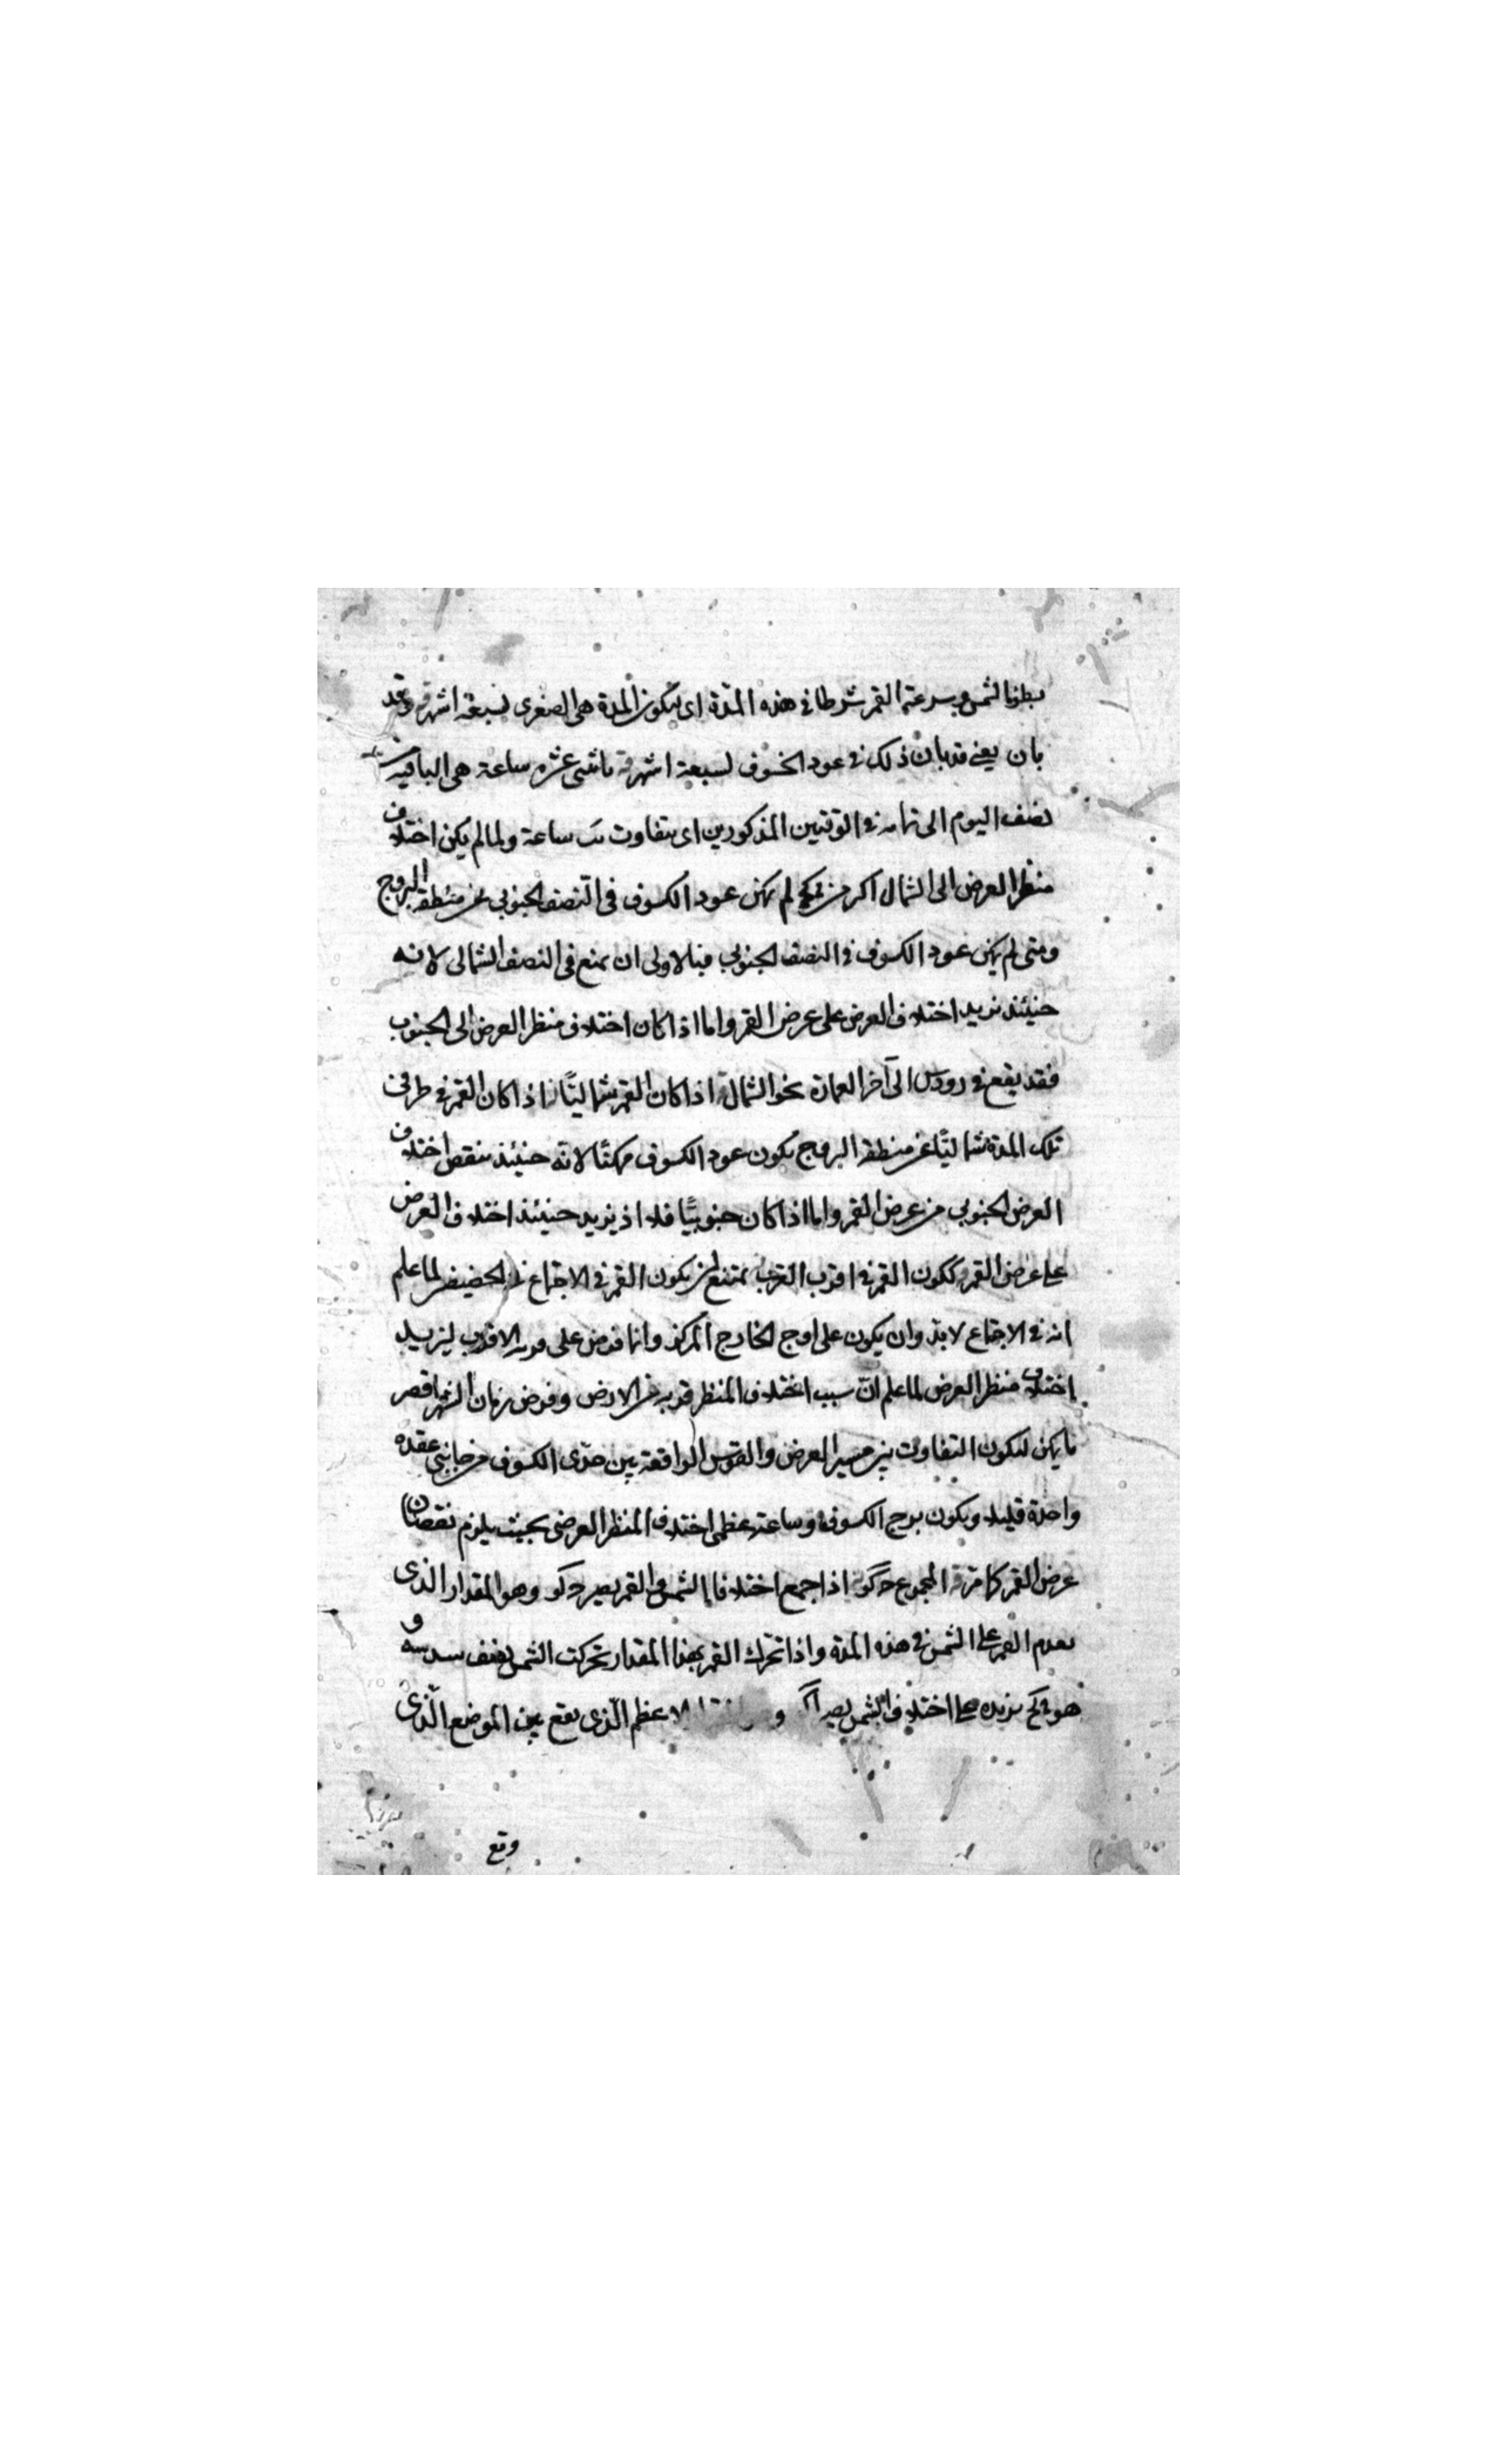 الشمس وسرعة القمر شرطا في هذه المدة اى لتكون المدة هى الصغرى لسبعة اشهر وقد
بان يعنى قد بان ذلك في عود الخسوف لسبعة اشهر باثنى عشره ساعة هى الباقية
نصف اليوم الى تمامه في الوقتين المذكورين اى بتفاوت ساعة ولما لم يكن اختلاف
منظر العرض الى الشمال اكثر من لم يمكن عود الكسوف فى النصف الجنوبى عن منطقة البروج
ومتى لم يمكن عود الكسوف في النصف الجنوبى فبالاولى ان يمتنع فى النصف الشمالى لانه
حنيئذ يزيد اختلاف العرض على عرض القمر واما اذا كان اختلاف منظر العرض الى الجنوب
فقد يقع في رودس الى آخر العمارة نحو الشمال اذا كان القمر شماليًا اذا كان القمر في طرفى
تلك المدة شماليًا عن منطقة البروج يكون عود الكسوف ممكنًا لانه حنيئذ ينقص اختلاف
العرض الجنوبى من عرض القمر واما اذا كان جنوبيًا فلا اذ يزيد حنيئذ اختلاف العرض
على عرض القمر ككون القمر في اقرب القرب يمتنع ان يكون القمر في الاجتماع في الحضيض لما علم
انه في الاجتماع لابد وان يكون على اوج الخارج المركز وانما فرض على الاقرب ليزيد
اختلاف منظر العرض لما علم انّ سبب اختلاف المنظر قربه من الارض وفرض زمان الشهر اقصر
ما يمكن ليكون التفاوت بين مسير العرض والقوس الواقعة بين حدّى الكسوف من جانبى عقدة
واحدة قليلا ويكون برج الكسوف وساعته عظمى اختلاف المنظر العرضى بحيث يلزم نقصان
عرض القمر كما مرّ المجموع اذا جمع اختلافا الشمس والقمر يصير وهو المقدار الذى
القمر على الشمس في هذه المدة واذا تحرك القمر بهذا المقدار تحركت الشمس نصف سدسه و
هو يزيده على اختلاف الشمس يصير و الاعظم الّذى يقع بين الموضع الّذى
وقع